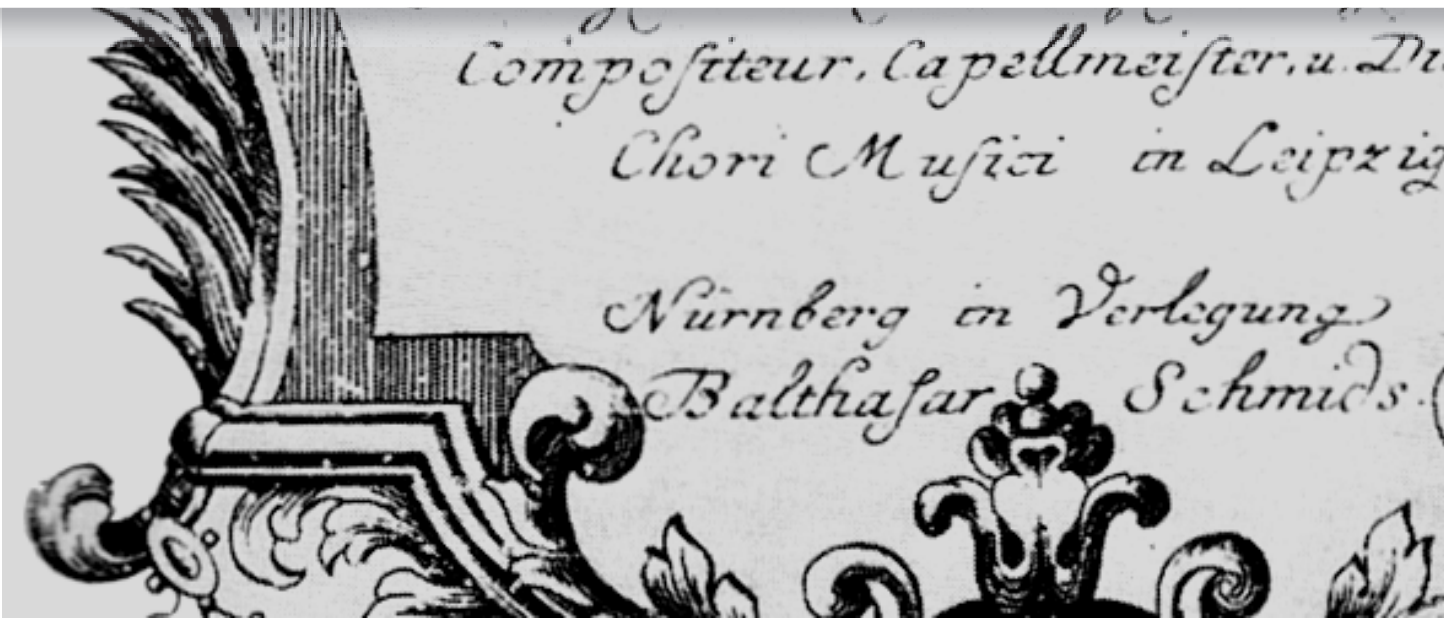 Compositeur, Capellmeister, u. Di
Chori Musici in Leipzig
Nürnberg in Verlegung
Balthasar Schmids.